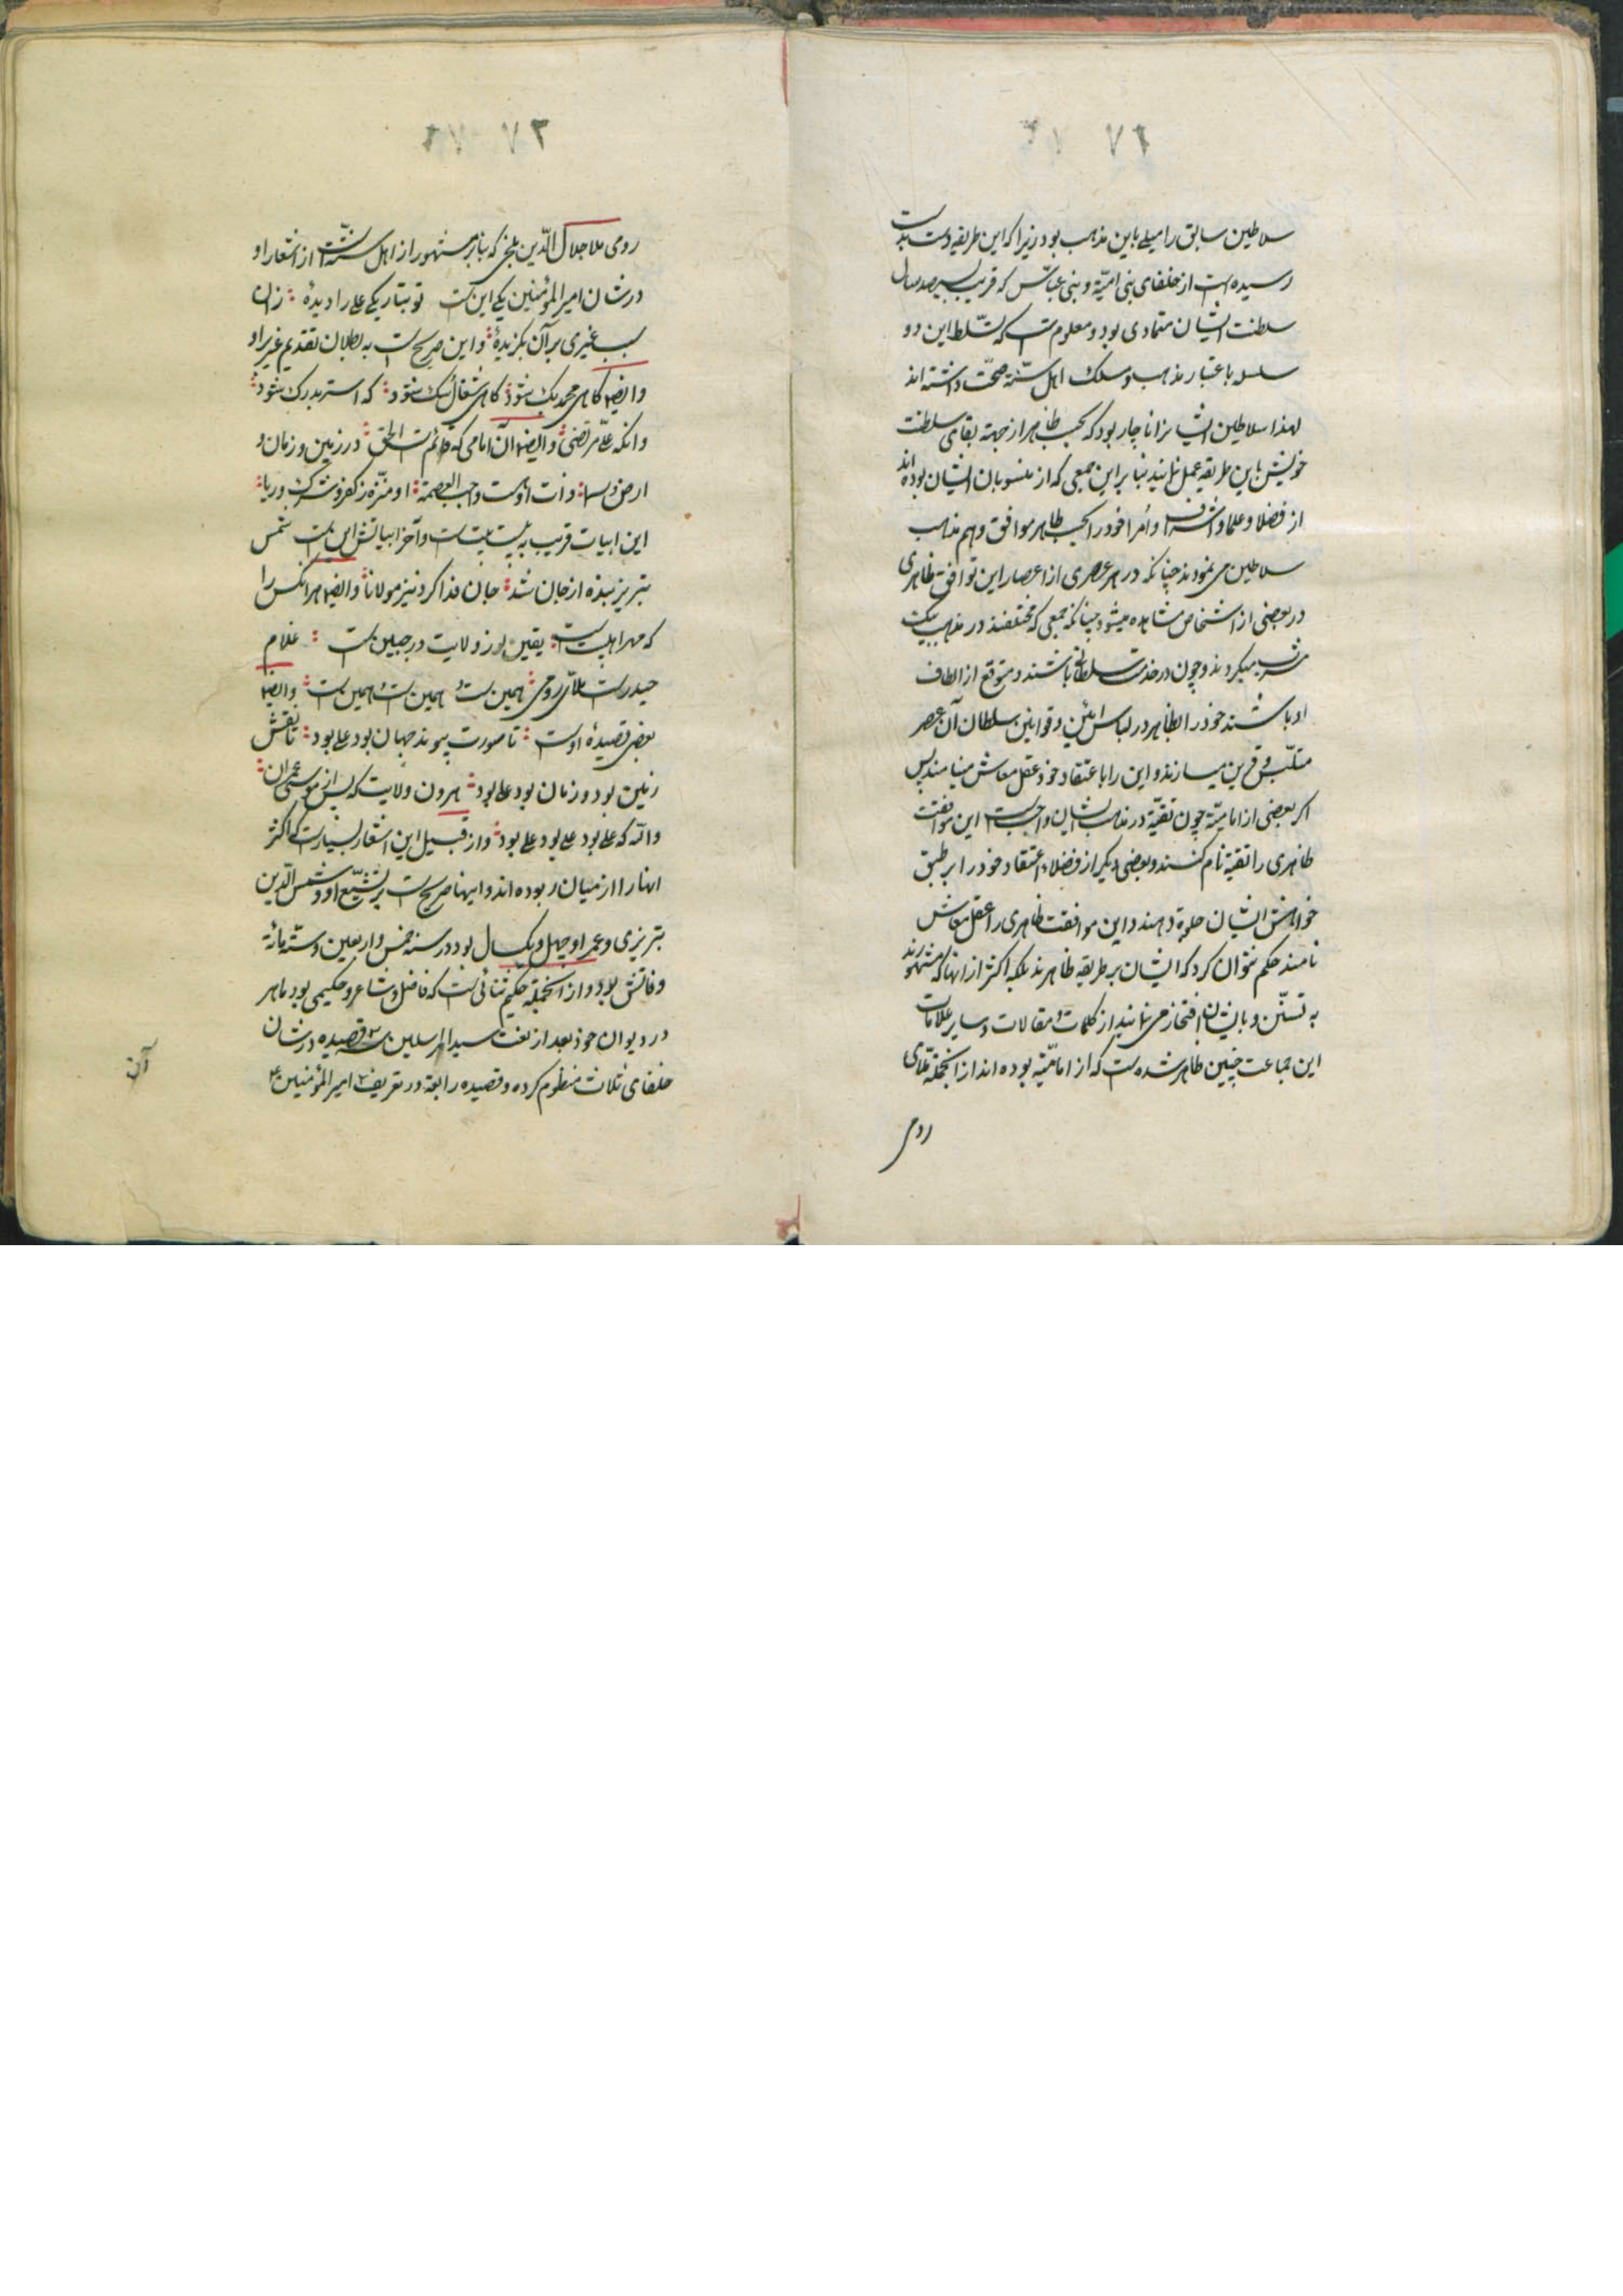 ۷۱
سلاطین سابق را میلی باین مذهب بود زیرا که این طریقه دست بدست
رسیده است از خلفای بنی امیّه و بنی عبّاس که قریب بسیصد سال
سلطنت ایشان متمادی بود و معلوم است که تسلّط این دو
سلسله باعتبار مذهب و مسلک اهل سنّة صحّت داشته اند
لهذا سلاطین ایشانرا ناچار بود که بحسب ظاهر از جهة بقای سلطنت
خویش باین طریقه عمل نمایند بنا براین جمعی که از منسوبان ایشان بوده اند
از فضلا و علما و اشراف و اُمرا خود را بحسب ظاهر موافق و هم مذهب
سلاطین می نمودند چنانکه در هر عصری از اعصار این توافق ظاهری
در بعضی از اشخاص مشاهده میشود چنانکه جمعی که مختلفند در مذهب بیک
میکردند و چون در خدمت سلطانی باشند و متوقع از الطاف
او باشند خود را بظاهر در لباس آئین و قوانین سلطان آن عصر
متلبّس و قرین میسازند و این را باعتقاد خود عقل معاش مینامند پس
اکر بعضی از امامیّه چون تقیّه در مذهب ایشان واجب است این موافقت
ظاهری را تقیّه نام کنند و بعضی دیکر از فضلا اعتقاد خود را بر طبق
خواهش ایشان جلوه دهند و این موافقت ظاهری را عقل معاش
نامند حکم نتوان کرد که ایشان بر طریقه ظاهرند بلکه اکثر از آنها که مشهورند
به تسنّن و بایشان افتخار می نمایند از کلمات و مقالات و سایر علامات
این جماعت چنین ظاهر شده است که از امامیّه بوده اند از انجمله ملّای
رومی
۷۲
رومی ملا جلال الدّین بلخی که بنابر مشهور از اهل سنّت است از اشعار او
در شان امیر المؤمنین یکی این است تو بتاریکی علی را دیدهٔ زان
سبب غیری برآن بکزیدهٔ و این صریح است به بطلان تقدیم غیر او
وایضا کاهی محمد بک شود کاهی شغال سک شود که استر بدرک شود
وانکه علی مرتضی وایضا آن امامی که قائم است الحق در زمین و زمان و
ارض و سما ذات او هست واجب العصمة او منزّه ز کفر و شرک و ریا
این ابیات قریب به بیست بیت است و آخر ابیاتش این است شمس
تبریز بنده از جان شد جان فدا کرد نیز مولانا وایضا هر انکس را
که مهر اهلبیت است یقین نور ولایت در جبین است غلام
حیدر است ملّای رومی همین است همین است همین است وایضا
بعضی قصیدهٔ اوست تا صورت پیوند جهان بود علی بود تا نقش
زمین بود و زمان بود علی بود هرون ولایت که پس از موسی عمران
والله که علی بود علی بود علی بود و از قبیل این اشعار بسیار است که اکثر
انها را از میان ربوده اند و اینها صریح است بر تشیّع او و شمس الدّین
تبریزی و عمر او چهل و یک سال بود در سنه خمس و اربعین و ستّمائة
وفاتش بود و از انجمله حکیم ثنائی است که فاضل و شاعر و حکیمی بود ماهر
در دیوان خود بعد از نعت سید المرسلین سه قصیده در شان
خلفای ثلاث منظوم کرده و قصیده رابعة در تعریف امیر المؤمنین ع
آن